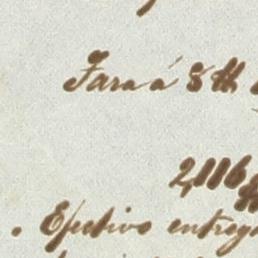 Tara á 8 th
2,116
. Efectivo entreg